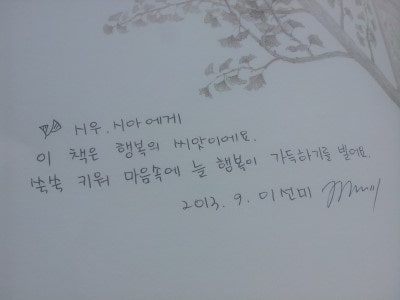 시우. 시아에게
이 책은 행복의 씨앗이에요.
쑥쑥 키워 마음속에 늘 행복이 가득하기를 빌어요.
2013. 9. 이선미